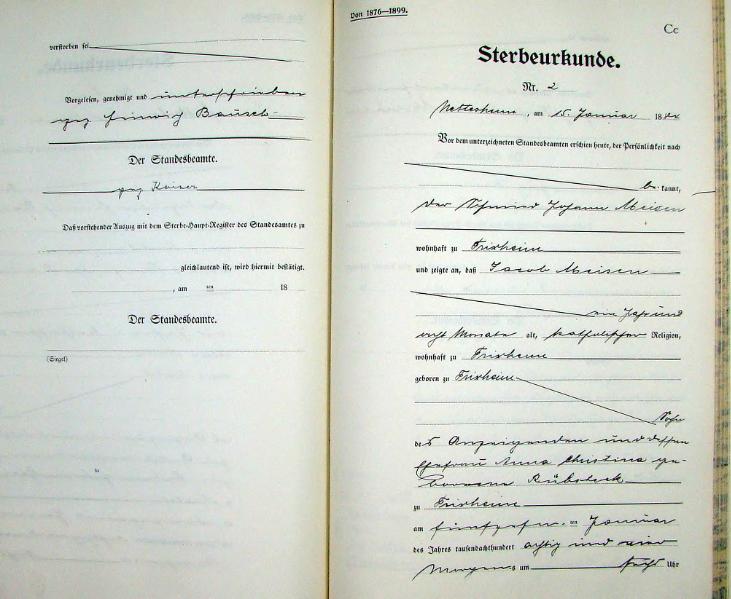 verstorben sei
Vorgelesen, genehmigt und unterschrieben
gez Heinrich Bausch
Der Standesbeamte.
gez Kaiser
Daß vorstehender Auszug mit dem Sterbe-Haupt-Register des Standesamtes zu
gleichlautend ist, wird hiermit bestätigt.
, am ten 18
Der Standesbeamte.
(Siegel)
Von 1876—1899.
Cc
Sterbeurkunde.
Nr. 2
am 15. Januar 18
Vor dem unterzeichneten Standesbeamten erschien heute, der Persönlichkeit nach
be kannt,
der Schmied Johann Meisen
wohnhaft zu Frixheim
und zeigte an, daß Jacob Meisen
ein Jahr und
acht Monate alt, katholischer Religion,
wohnhaft zu Frixheim
geboren zu Frixheim
Sohn
des Anzeigenden und dessen
Ehefrau Anna Christina ge-
borenen
zu Frixheim
am fünfzehnten Januar
des Jahres tausendachthundert achtzig und vier
Morgens um Uhr